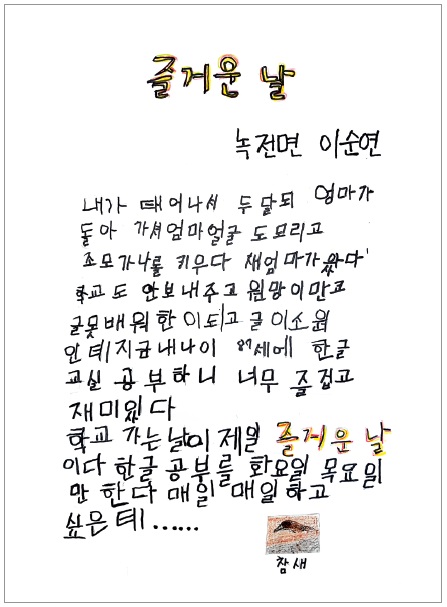 즐거운 날
녹전면 이순연
내가 태어나서 두달되 엄마가
돌아 가셔엄마얼굴 도모리고
조모가나를 키우다 새엄마가왔다
학교도 안보내주고 원망이만고
글못배워한이되고 글이소원
인데지금내나이 87세에 한글
교실 공부하니 너무 즐겁고
재미있다
학교 가는날이제일 즐거운 날
이다 한글 공부를 화요일 목요일
만 한다 매일 매일하고
싶은데......
참새